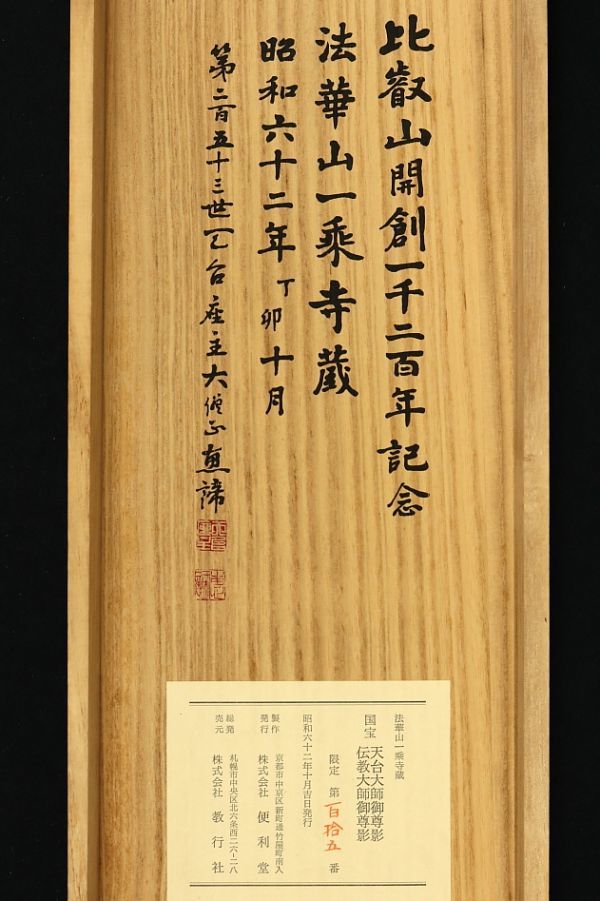 比叡山開創一千二百年記念
法華山一乘寺蔵
昭和六十二年丁卯十月
第二百五十三世天台座主大僧正惠諦
法華山一乗寺蔵
国宝 天台大師御尊影
伝教大師御尊影
限定 第百拾五番
昭和六十二年十月吉日発行
製作
発行
京都市中京区新町通竹屋町南入
株式会社 便利堂
総発
売元
札幌市中央区北六条西二六-二八
株式会社 教行社